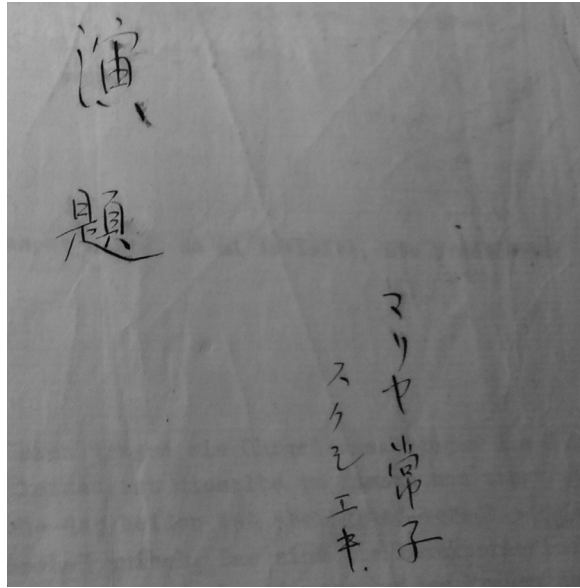 演題
マリヤ常子
スクミエキ.